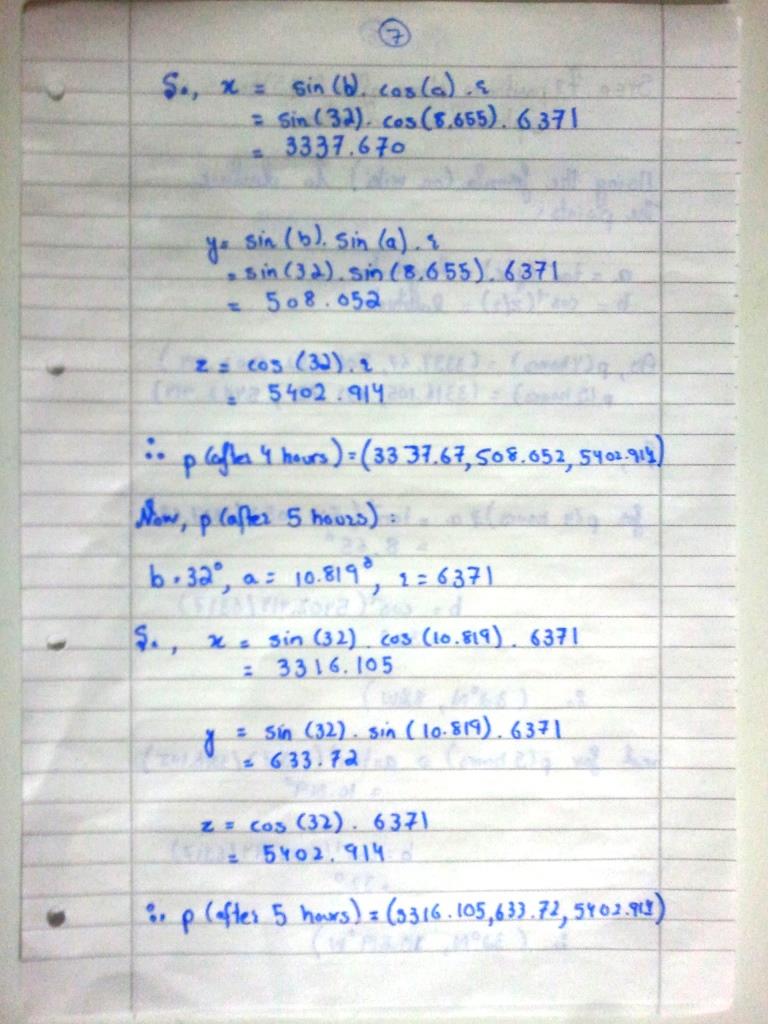 7
So, x = sin(b). cos(a). r
= sin(32). cos(8.655). 6371
= 3337.670
y= sin(b). sin(a). r
= sin(32). sin(8.655). 6371
= 508.052
z = cos(32). r
= 5402.914
∴ p(after 4 hours)=(3337.67,508.052,5402.914)
Now, p(after 5 hours)=
b=32°, a= 10.819°, r=6371
So, x = sin(32). cos(10.819). 6371
= 3316.105
y = sin(32). sin(10.819). 6371
= 633.72
z = cos(32). 6371
= 5402.914
∴ p(after 5 hours)=(3316.105,633.72,5402.914)